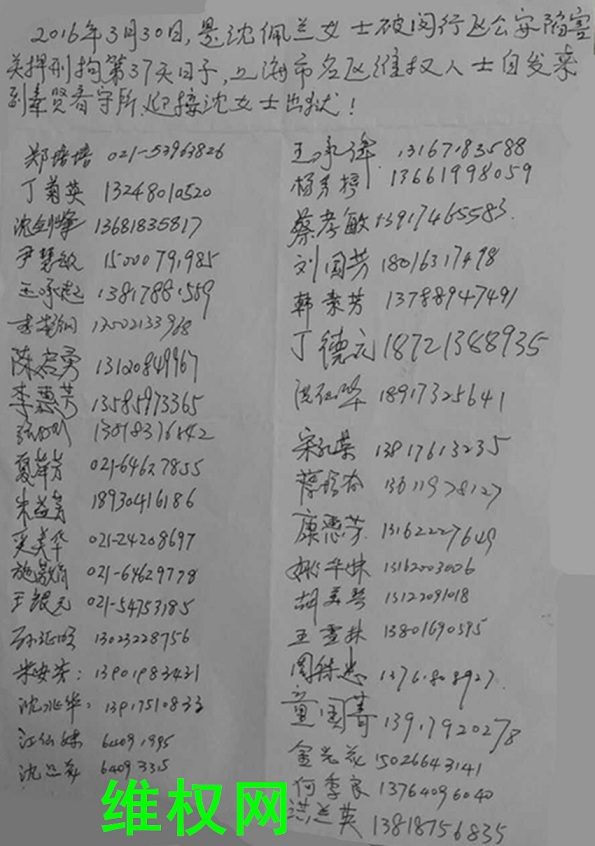 2016年3月30日,是沈佩兰女士被闵行区公安陷害
关押刑拘第37天日子,上海市各区维权人士自发来
到奉贤看守所 迎接沈女士出狱!
郑培培 021-53963826
丁菊英 13248010520
沈剑峰 13681835817
尹慧敏 15000791985
王咏起 13817881559
13502133968
陈启勇 13120849967
李惠芳 13585973365
夏萍芳 021-64627855
朱益勇 18930416186
奚美华 021-24208697
施 021-64629778
王银元 021-54753185
13023228756
米安芳: 13901983431
沈水华: 13917510833
江仙妹 64091995
沈 64093315
王永伟 13167183588
杨秀婷 13661998059
蔡孝敏 13917465583.
刘国芳 18016317498
韩素芳 13788947491
丁德元 18721388935
18917325641
宋 13817613235
蔡 13611978127
康惠芳 13162227649
姚平妹 13162003026
胡 15122091018
王雪林 13801690595
周 忠 13761808927.
童国菁 13917920278
金 15026643141
何季良 13764096040
洪兰英 13818756835
维权网